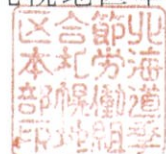 北海道季
節労働組
合札幌地
区本部印